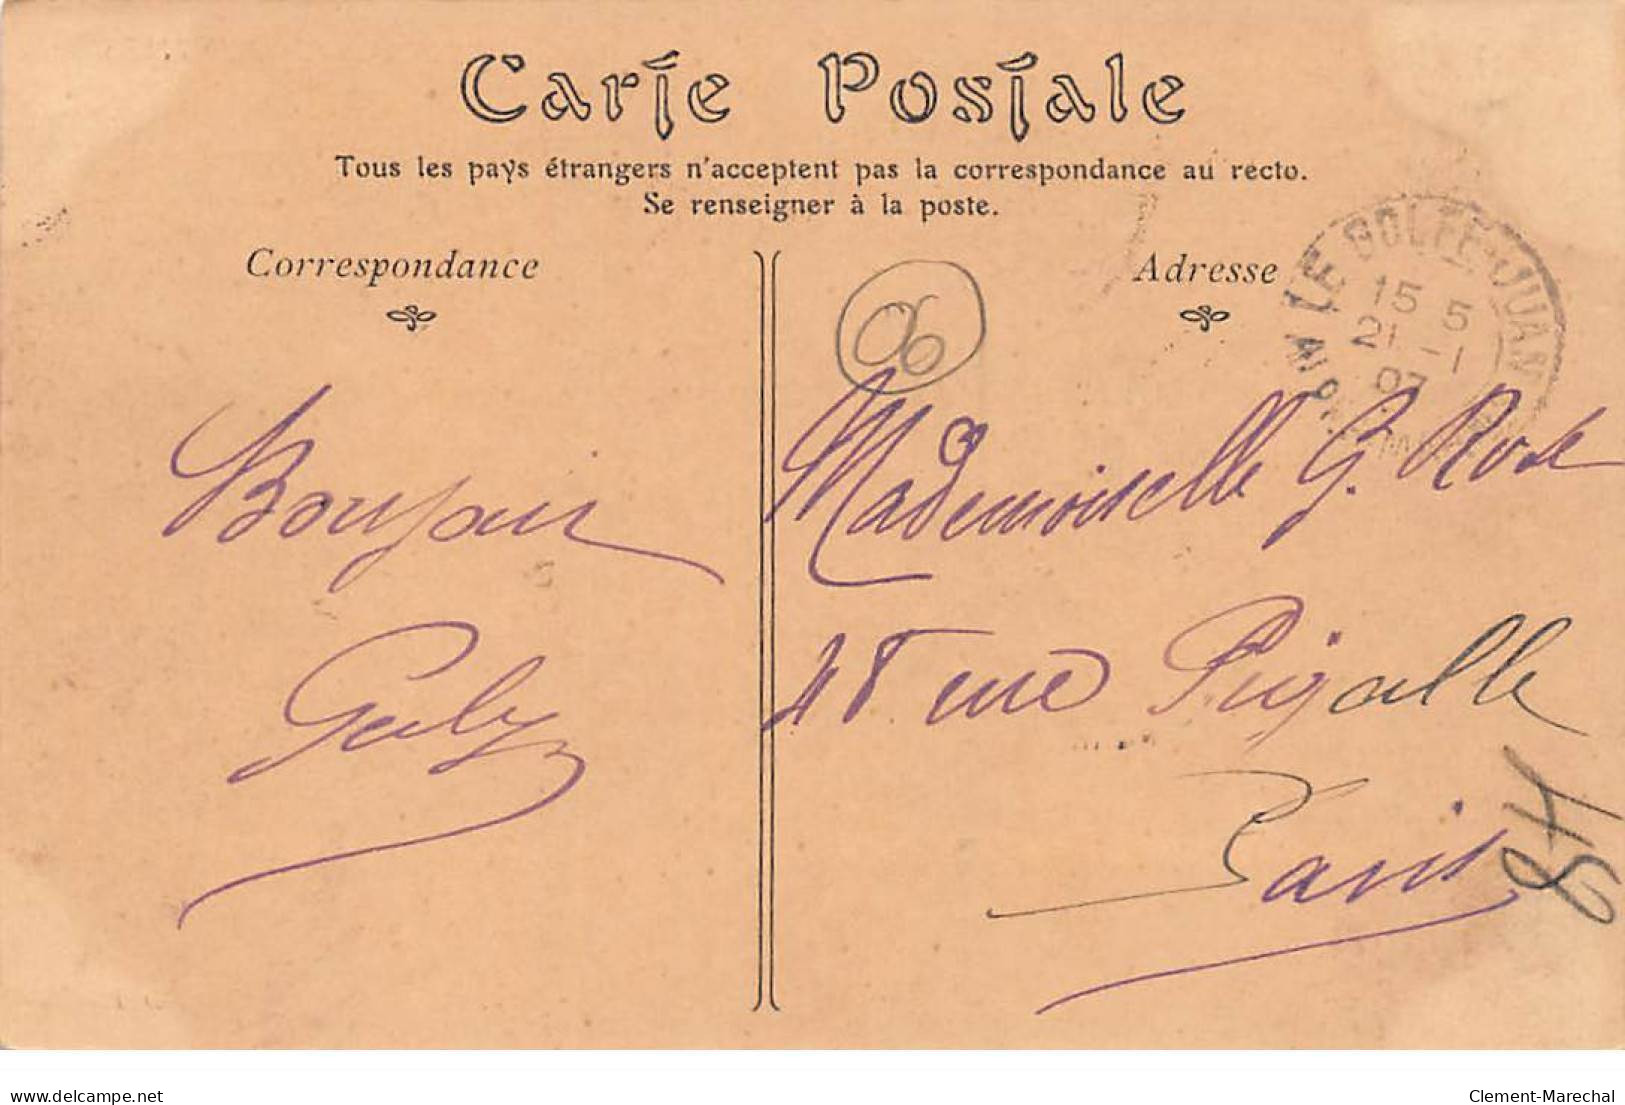 Carte Postale
Tous les pays étrangers n'acceptent pas la correspondance au recto.
Se renseigner à la poste.
Correspondance
Adresse
LE GOLFE-JUAN
15 5
21 -1
07
06
Bonjour
Mademoiselle G. Rose
48 rue Pigalle
Paris
48
delcampe.net
Clement-Marechal